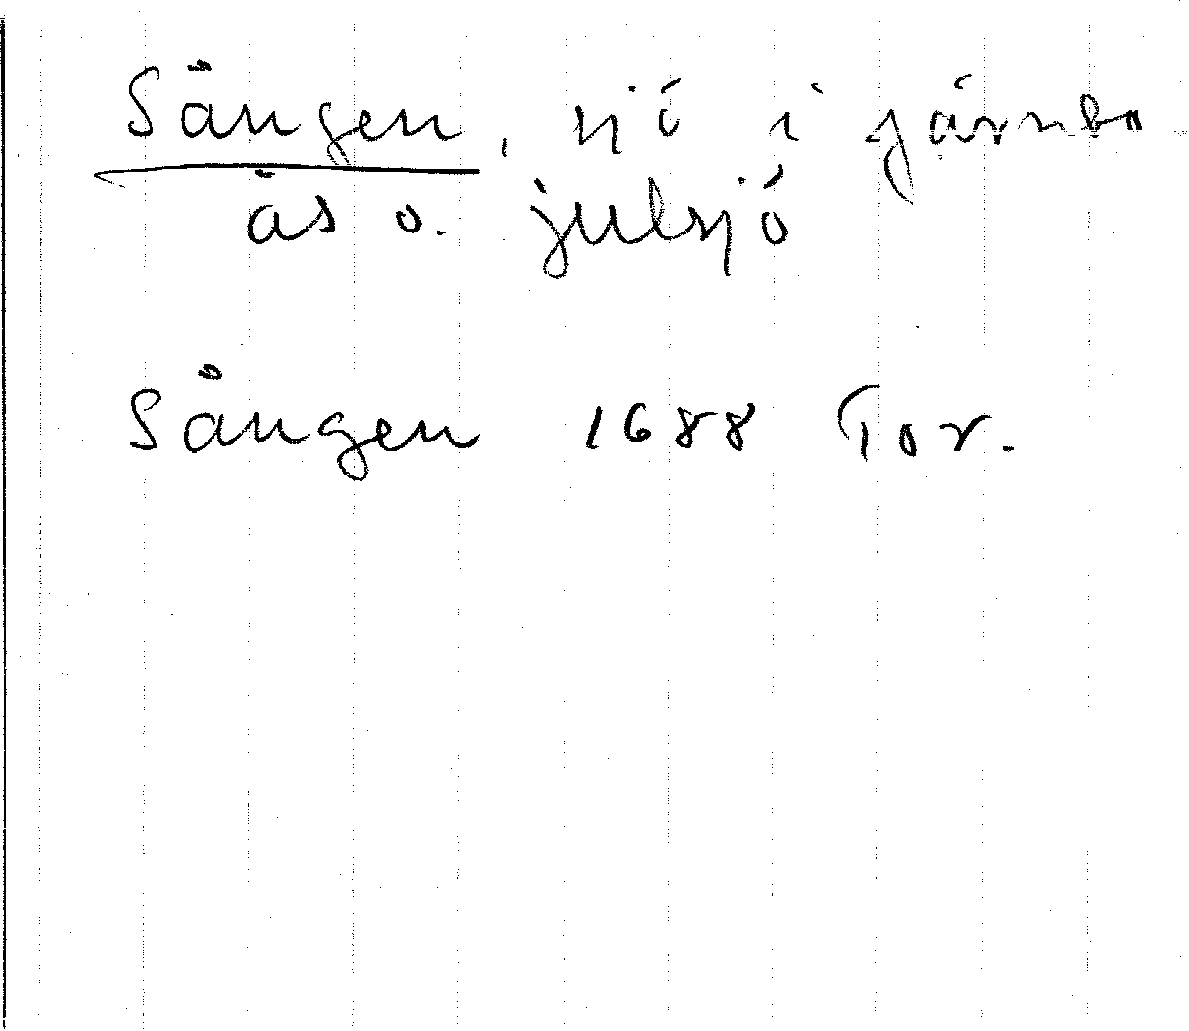 Sången, sjö i Järnbo
ås o. julsjö
Sången 1688 Tor.